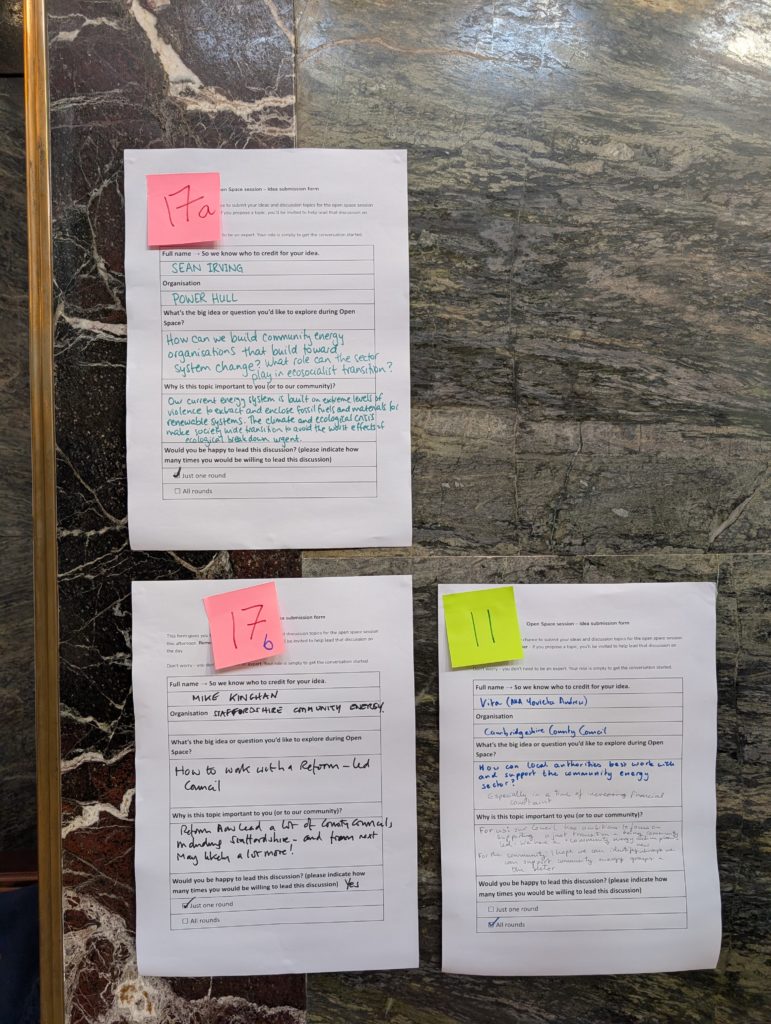 17a
Open Space session – Idea submission form
to submit your ideas and discussion topics for the open space session
if you propose a topic, you'll be invited to help lead that discussion on
to be an expert. Your role is simply to get the conversation started.
Full name → So we know who to credit for your idea.
SEAN IRVING
Organisation
POWER HULL
What's the big idea or question you'd like to explore during Open
Space?
How can we build community energy
organisations that build toward
system change? What role can the sector
play in ecosocialist transition?
Why is this topic important to you (or to our community)?
Our current energy system is built on extreme levels of
violence to extract and enclose fossil fuels and materials for
renewable systems. The climate and ecological crisis
make society wide transition to avoid the worst effects of
ecological breakdown urgent.
Would you be happy to lead this discussion? (please indicate how
many times you would be willing to lead this discussion)
Just one round
All rounds
17
b
submission form
This form gives you discussion topics for the open space session
this afternoon. be invited to help lead that discussion on
the day.
Don't worry - you don't expert. Your role is simply to get the conversation started.
Full name → So we know who to credit for your idea.
MIKE KINGHAN
Organisation STAFFORDSHIRE COMMUNITY ENERGY
What's the big idea or question you'd like to explore during Open
Space?
How to work with a Reform-led
Council
Why is this topic important to you (or to our community)?
Reform now lead a lot of County Councils,
including Staffordshire - and from next
May likely a lot more!
Would you be happy to lead this discussion? (please indicate how
many times you would be willing to lead this discussion) Yes
Just one round
All rounds
11
Open Space session – Idea submission form
chance to submit your ideas and discussion topics for the open space session
- if you propose a topic, you'll be invited to help lead that discussion on
Don't worry - you don't need to be an expert. Your role is simply to get the conversation started.
Full name → So we know who to credit for your idea.
Organisation
Cambridgeshire County Council
What's the big idea or question you'd like to explore during Open
Space?
How can local authorities best work with
and support the community energy
sector?
Especially in a time of increasing financial
constraint
Why is this topic important to you (or to our community)?
For us: our Council has ambitions to focus on
For the community: I hope we can
can support community energy groups
Would you be happy to lead this discussion? (please indicate how
many times you would be willing to lead this discussion)
Just one round
All rounds